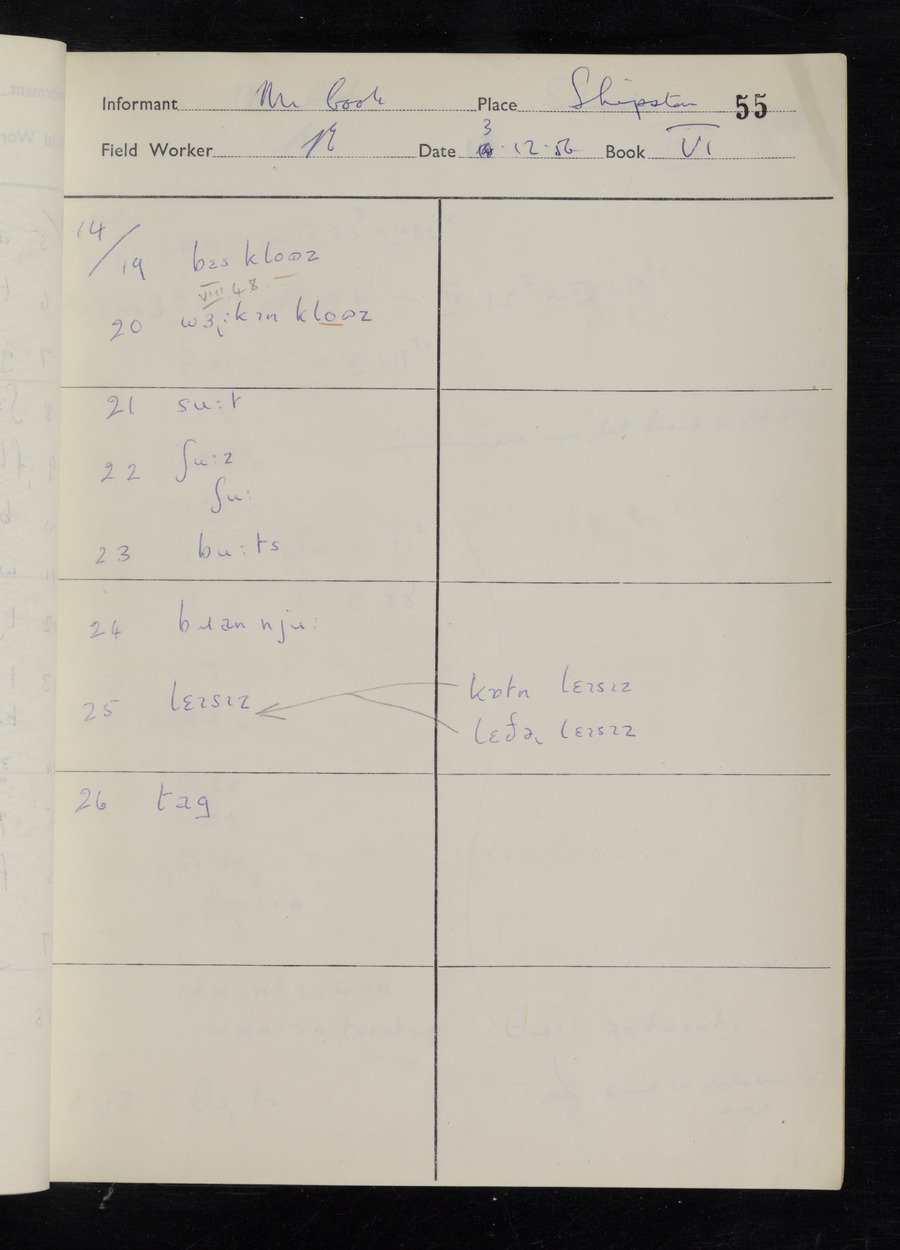 Informant Mr Cook Place Shipston 55
Field Worker Date 3.12.56 Book VI
14/19 bɛs kloəz
VIII.48.
20 wɜ˞:kɪn kloəz
21 su:t
22 ʃu:z
ʃu:
23 bu:ts
24 bɹan nju:
25 lɛɪsɪz
kɒtn lɛɪsɪz
lɛðə˞ lɛɪsɪz
26 tag